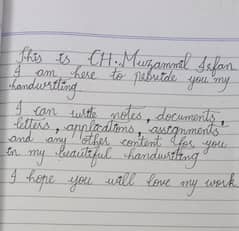 This is CH. Muzammil Irfan
I am here to provide you my
handwriting
I can write notes, documents,
letters, applications, assignments
and any other content for you
in my beautiful handwriting
I hope you will love my work